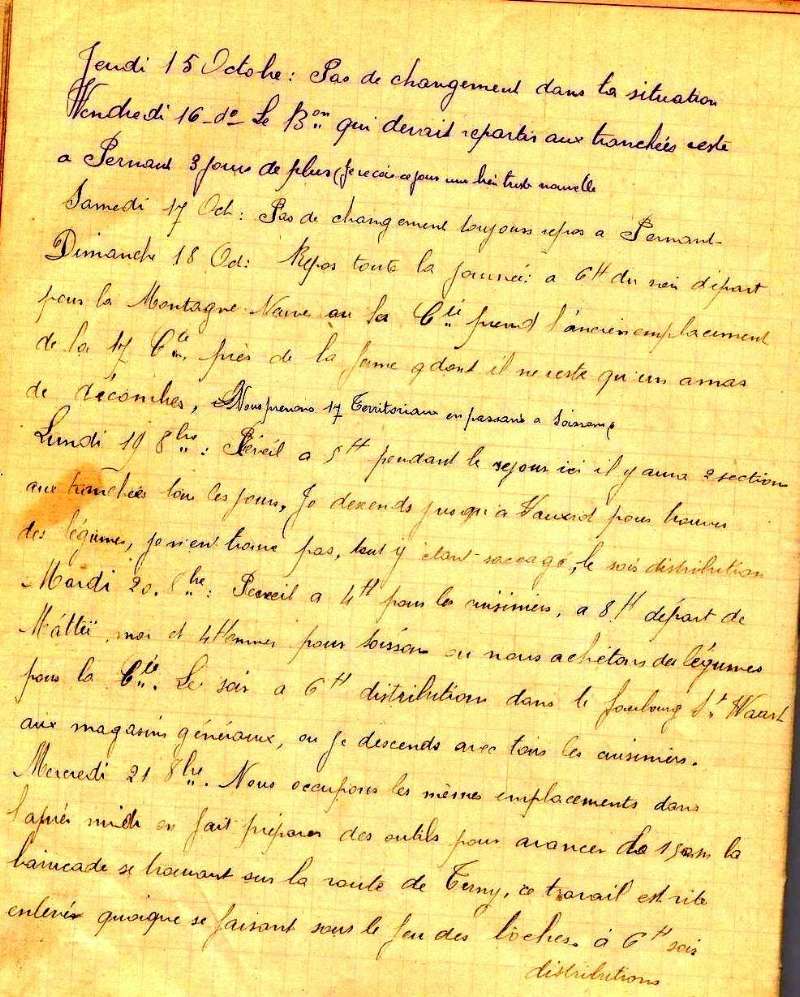 Jeudi 15 Octobre : Pas de changement dans la situation
Vendredi 16 - do - Le Bon qui devait repartir aux tranchées reste
a Pernant 3 jours de plus (Je recois ce jour une bien triste nouvelle
Samedi 17 Oct : Pas de changement toujours repos a Pernant -
Dimanche 18 Oct : Repos toute la journée : a 6H du soir départ
pour la Montagne Neuve ou la Cie prend l'ancien emplacement
de la 17 Cie près de la ferme dont il ne reste qu'un amas
de décombes, Nous prenons 17 Territoriaux en passant a Soissons
Lundi 19 8bre : Réveil a 5H pendant le sejour ici il y aura 2 section
aux tranchées tous les jours, Je descends jusqu'a Vauxrot pour trouver
des légumes, je n'en trouve pas, tout y étant saccagé, le soir distribution
Mardi 20. 8bre : Reveil a 4H pour les cuisiniers, a 8H départ de
Máttéï, moi et 4 Hommes pour Soissons ou nous achetons des légumes
pour la Cie. Le soir a 6H distributions dans le faubourg St Waast
aux magasins généraux, ou je descends avec tous les cuisiniers.
Mercredi 21 8bre. Nous occupons les mêmes emplacements dans
l'après midi on fait préparer des outils pour avancer de la
barricade se trouvant sur la route de Terny, ce travail est vite
enlevé quoique se faisant sous le feu des boches. à 6H soir
distributions